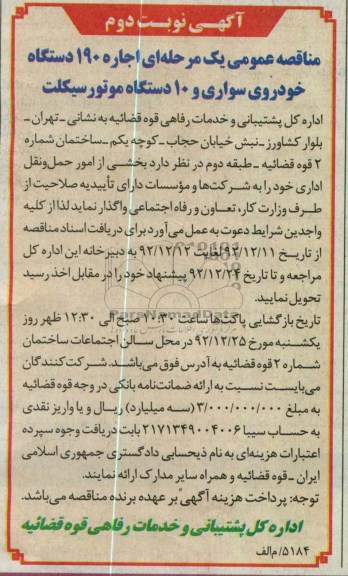 آگهی نوبت دوم
مناقصه عمومی یک مرحله‌ای اجاره ۱۹۰ دستگاه
خودروی سواری و ۱۰ دستگاه موتور سیکلت
اداره کل پشتیبانی و خدمات رفاهی قوه قضائیه به نشانی - تهران -
بلوار کشاورز - نبش خیابان حجاب - کوچه یکم - ساختمان شماره
۲ قوه قضائیه - طبقه دوم در نظر دارد بخشی از امور حمل‌ونقل
اداری خود را به شرکت‌ها و مؤسسات دارای تأییدیه صلاحیت از
طرف وزارت کار، تعاون و رفاه اجتماعی واگذار نماید لذا از کلیه
واجدین شرایط دعوت به عمل می‌آورد برای دریافت اسناد مناقصه
از تاریخ ۹۲/۱۲/۱۱ لغایت ۹۲/۱۲/۱۲ به دبیرخانه این اداره کل
مراجعه و تا تاریخ ۹۲/۱۲/۲۴ پیشنهاد خود را در مقابل اخذ رسید
تحویل نمایید.
تاریخ بازگشایی پاکت‌ها ساعت ۱۰:۳۰ صبح الی ۱۲:۳۰ ظهر روز
یکشنبه مورخ ۹۲/۱۲/۲۵ در محل سالن اجتماعات ساختمان
شماره ۲ قوه قضائیه به آدرس فوق می‌باشد. شرکت‌کنندگان
می‌بایست نسبت به ارائه ضمانت‌نامه بانکی در وجه قوه قضائیه
به مبلغ ۳/۰۰۰/۰۰۰/۰۰۰ (سه میلیارد) ریال و یا واریز نقدی
به حساب سیبا ۲۱۷۱۳۴۹۰۰۴۰۰۶ بابت دریافت وجوه سپرده
اعتبارات هزینه‌ای به نام ذیحسابی دادگستری جمهوری اسلامی
ایران - قوه قضائیه و همراه سایر مدارک ارائه نمایند.
توجه: پرداخت هزینه آگهی بر عهده برنده مناقصه می‌باشد.
اداره کل پشتیبانی و خدمات رفاهی قوه قضائیه
۵۱۸۴/م الف